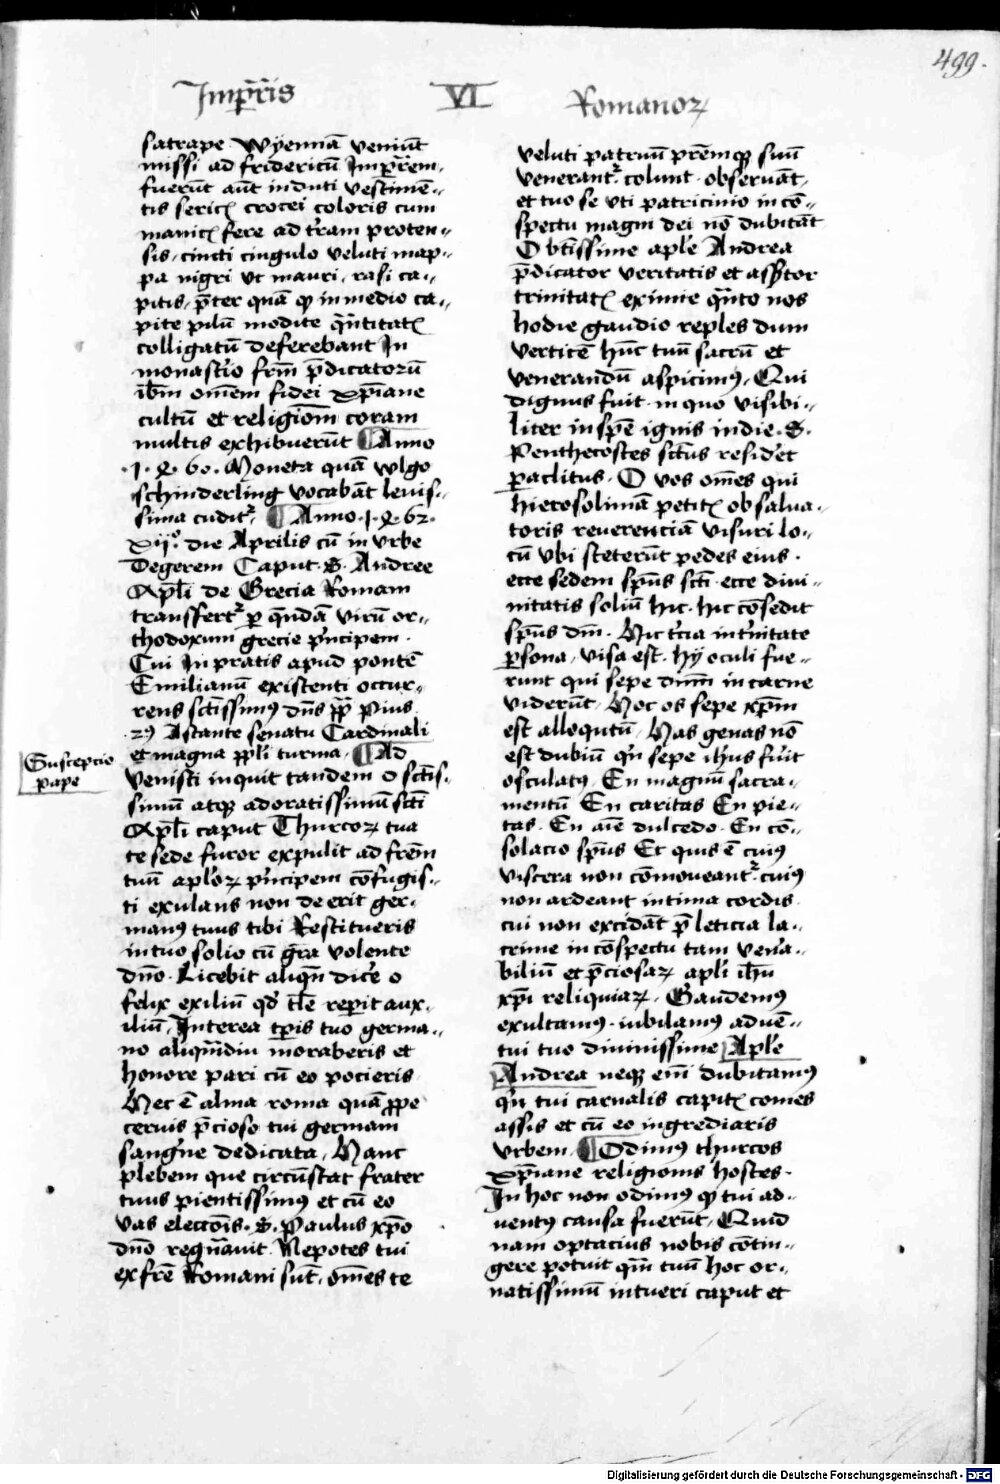 499.
Imp̄r̄is VI Romanoꝝ
satrape Wyennā veniūt
missi ad fridericū Imp̄r̄em.
fuerūt aūt induti vestimē-
tis sericꝭ crocei coloris cum
manicꝭ fere ad tr̄am proten-
sis, cincti cingulo veluti map-
pa nigri vt mauri, rasi ca-
pitis, p̄ter quā ꝙ in medio ca-
pite pilū modice q̄ntitatꝭ
colligatū deferebant In
monast'io frm̄ p̄dicatorū
ibm̄ om̄em fidei xp̄iane
cultū et religiom̄ coram
multis exhibuerūt ¶ Anno
.1.4.60. Moneta quā wlgo
schinderling vocabāt leuis-
sima cudit᷑. ¶ Anno .1.4.62.
xij.° die Aprilis cū in vrbe
degerem Caput .S. Andree
Apl̄i de Grecia Romam
transfert᷑ ꝑ q̄ndā virū or-
thodoxum grecie p'ncipem.
Cui In pratis apud pontē
Emilianū existenti occur-
rens sct̄issimꝰ dn̄s pp̄ pius
.2ꝰ Astante senatu Cardinali
et magna pp̄li turma. ¶ Ad
Suscepcio
pape
venisti inquit tandem o sct̄is-
simū atqꝫ adoratissimū sct̄i
Apl̄i caput Thurcoꝝ tua
te sede furor expulit ad fr̄em
tuū apl'oꝝ p'ncipem cōfugis-
ti exulans non deerit ger-
manꝰ tuus tibi Restitueris
in tuo solio cū gr̄a volente
dn̄o. Licebit aliqn̄ dic'e o
felix exiliū qd' tl̄e rep̄it aux-
iliū, Interea tp̄is tuo germa-
no aliqm̄diu moraberis et
honore pari cū eo pocieris
Hec ē alma roma quā ꝓpe
cernis p̄cioso tui germani
sangu'ne dedicata, Hanc
plebem que circūstat frater
tuus pientissimꝰ et cū eo
vas elecc̄ois .S. Paulus xp̄o
dn̄o regn̄auit Nepotes tui
ex fr̄e Romani sūt, om̄es te
veluti patruū p̄remqꝫ suū
venerant᷑ colunt obseruāt,
et tuo se vti patricinio in cō-
spectu magni dei nō dubitāt
O bt̄issime apl'e Andrea
p̄dicator veritatis et ass'tor
trinitatꝭ eximie q̄nto nos
hodie gaudio reples dum
verticē hūc tuū sacrū et
venerandū aspicimꝰ, Qui
dignus fuit in quo visibi-
liter in spē ignis in die .S.
Penthecostes sct̄us resid'et
ꝑaclitus. O vos om̄es qui
hierosolimā petitꝭ ob salua-
toris reuerenciā visuri lo-
cū vbi steterūt pedes eius.
ecce sedem sp̄us sct̄i ecce diui-
nitatis soliū hic. hic cōsedit
sp̄us dm̄. Hic t'cia int'nitate
ꝑsona, visa est. hij oculi fue-
runt qui sepe dn̄m in carne
viderūt. Hoc os sepe xp̄m
est alloqutū, Has genas nō
est dubiū qn̄ sepe ih̄us fuit
osculatꝰ. En magnū sacra-
mentū En caritas En pie-
tas. En aīe dulcedo. En cō-
solacio sp̄us Et quis ē cuiꝰ
viscera non cōmoueant᷑. cuiꝰ
non ardeant intima cordis
cui non excidāt p̄ leticia la-
crime in cōspectu tam ven'a-
biliū et p̄ciosaꝝ apl'i ih̄u
xp̄i reliquiaꝝ. Gaudemꝰ
exultamꝰ iubilamꝰ aduē-
tui tuo diuinissime Apl'e
Andrea neqꝫ em̄ dubitamꝰ
qn̄ tui carnalis capitꝭ comes
assis et cū eo ingrediaris
vrbem. ¶ Odimus thurcos
xp̄iane religionis hostes.
In hoc non odimꝰ ꝙ tui ad-
uentꝰ causa fuerūt, Quid
nam optacius nobis cōtin-
gere potuit qm̄ tuū hoc or-
natissimū intueri caput et
Digitalisierung gefördert durch die Deutsche Forschungsgemeinschaft - DFG